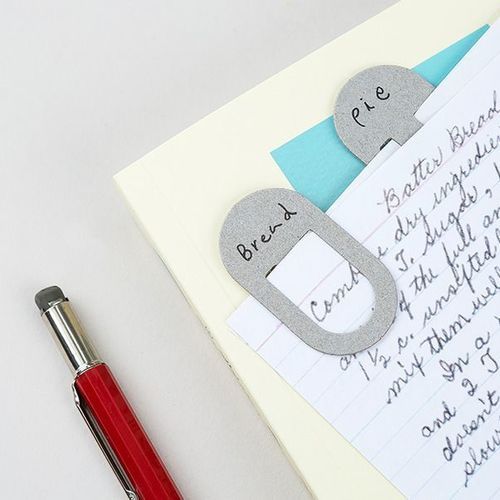 Pie
Bread
Batter Bread
Combine dry ingredients
T. Sugar, 1
of the flour and
1½ c. unsifted
mix them well
In a
and 2 T.
doesn't
slow